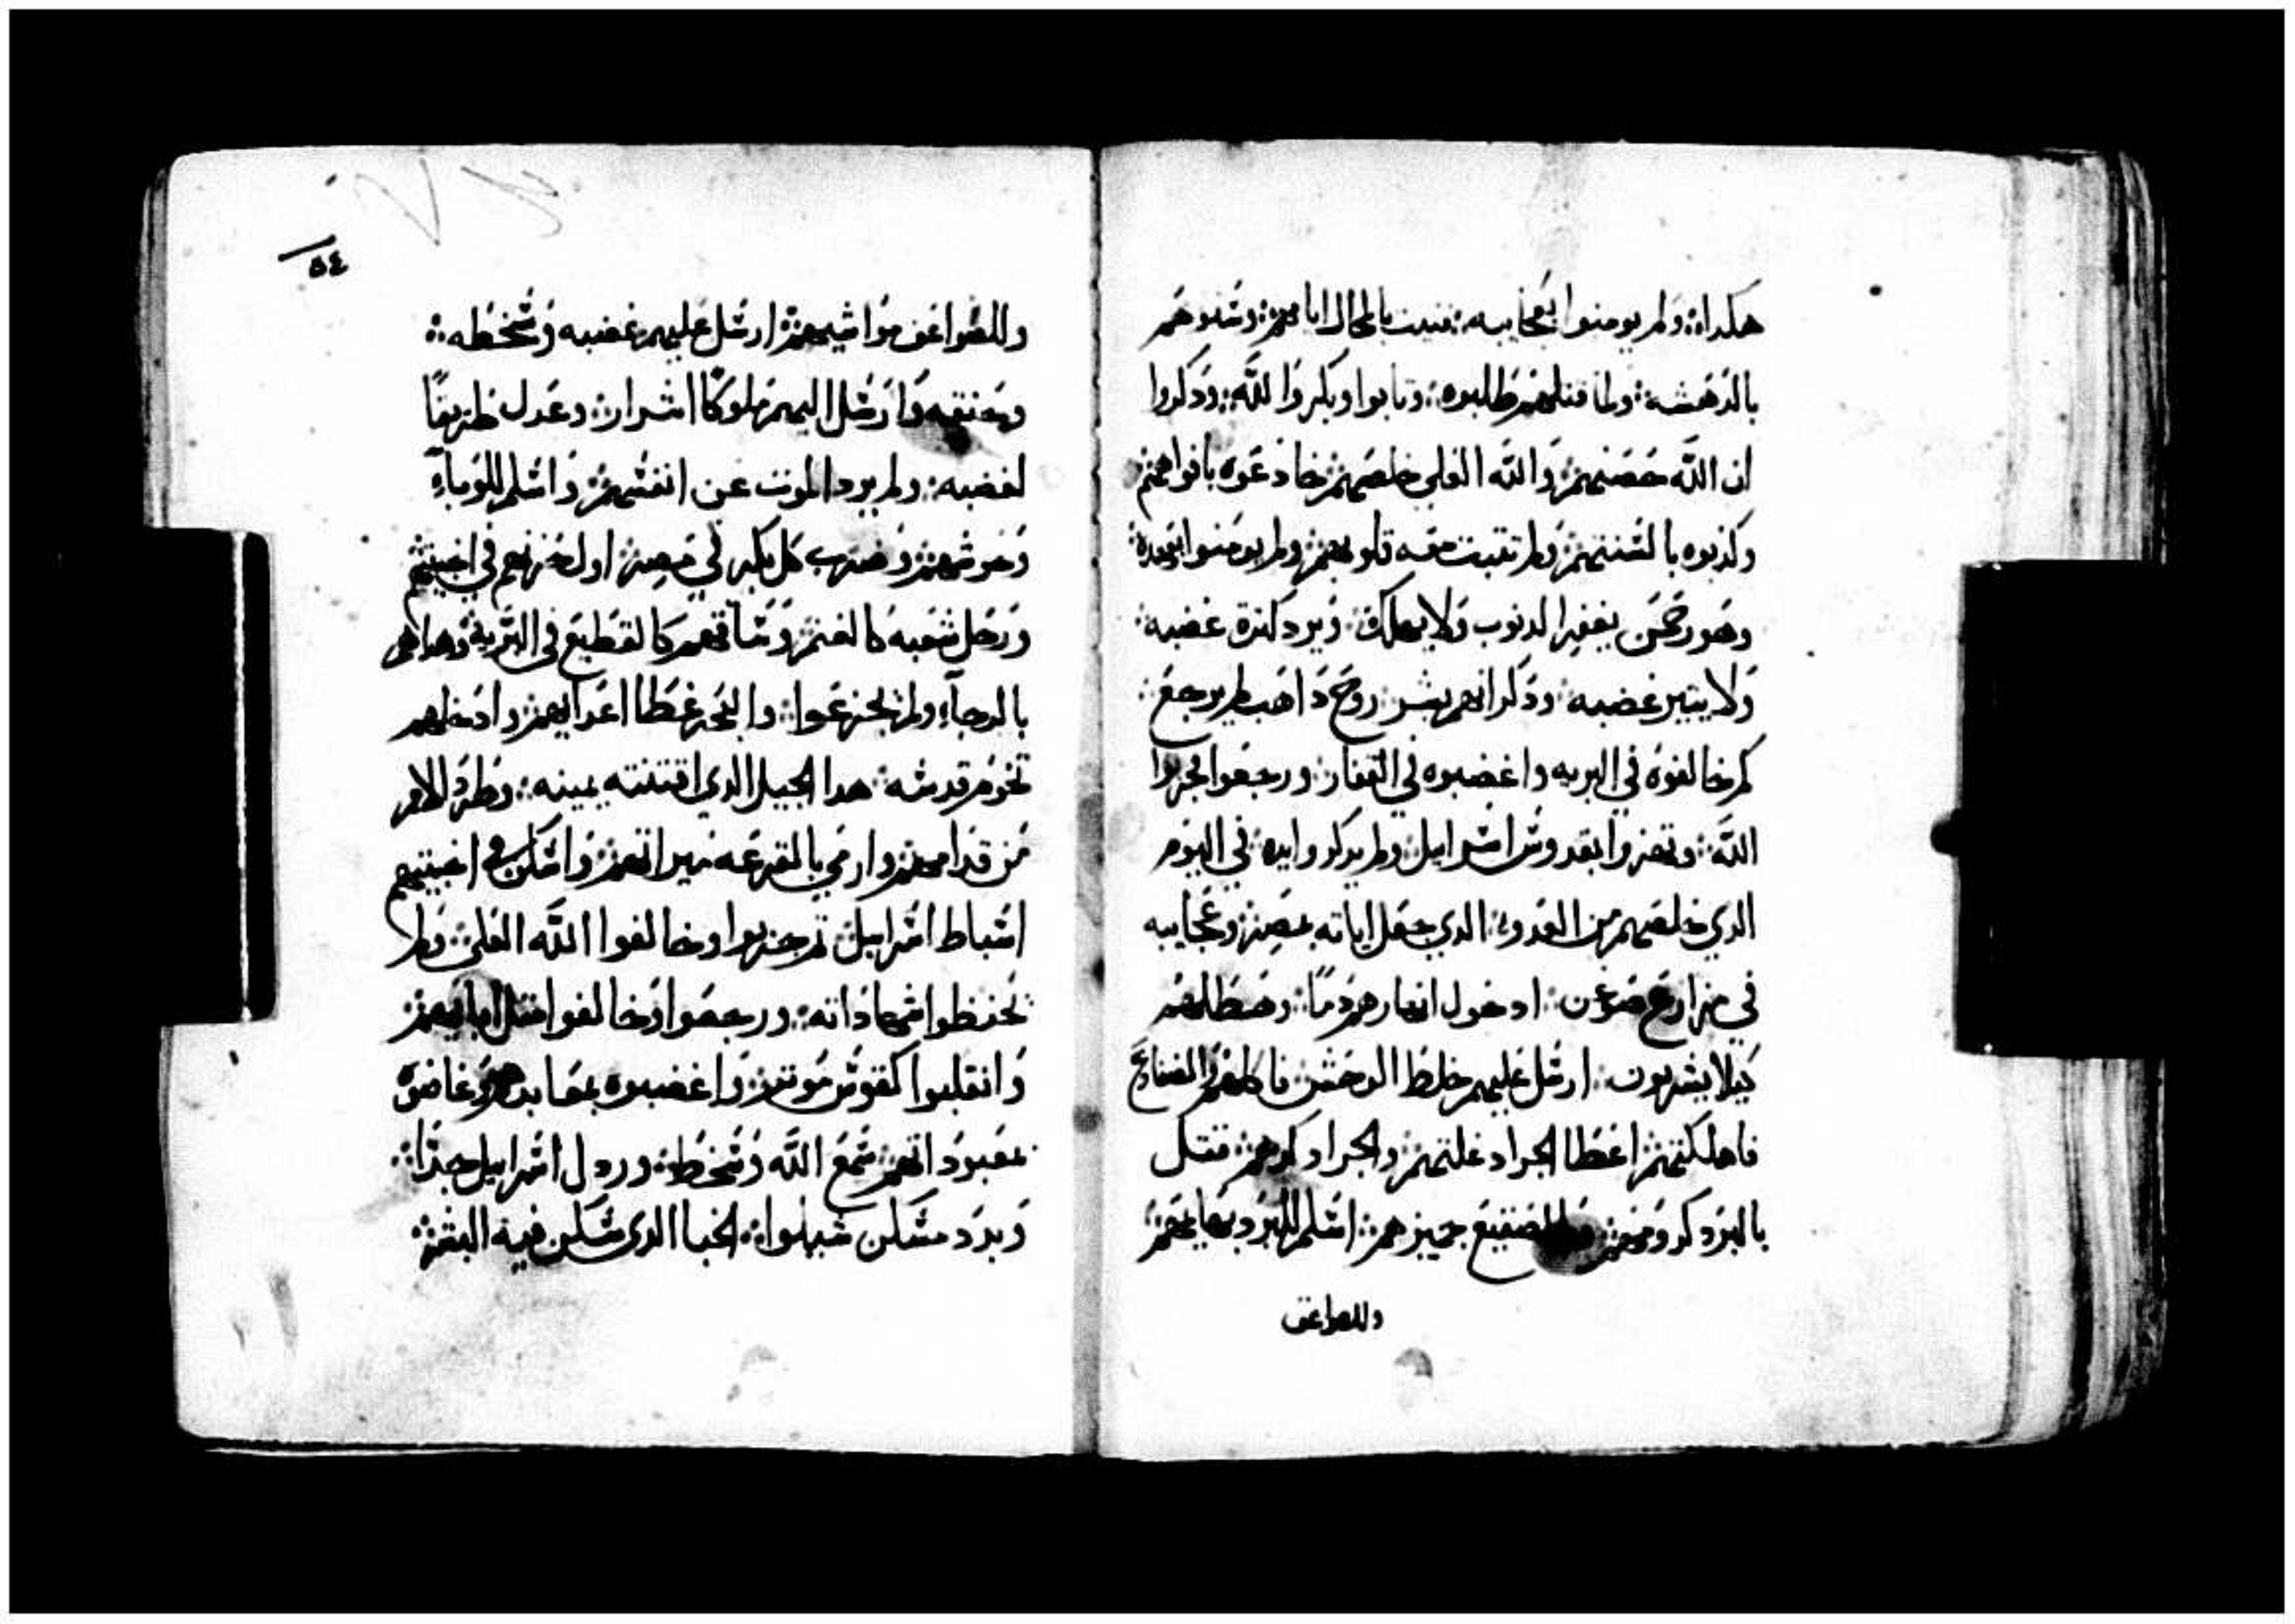 هكداه ولم يومنوا بعجايبه فنيت بالمحال ايامهم وسنوهم
بالدهشه ولما قتلهم طلبوه وتابوا وبكروا لله ودكروا
ان الله حصنهم والله العلي خلصهم خادعوه بافواههم
وكذبوه بالسنتهم ولم تتبت معه قلوبهم ولم يومنوا بعهده
وهو رحمن يغفر الدنوب ولا يهلك ويرد كترة غضبه
ولا يتير غضبه ودكر انهم بشر روح داهب لم يرجع
كم خالفوه في البريه واغضبوه في القفار ورجعوا جربوا
الله وتمزوا بقدوس اسراييل ولم يدكروا ايده في اليوم
الدي خلصهم من العدو الدي جعل اياته بمصر وعجايبه
في مزارع صوعن ادحول انهارهم دما وصطلهم
كيلا يشربون ارسل عليهم خلط الوحش فاكلهم والضفادع
فاهلكتهم اعطا الجراد غلتهم والجراد كدهم فقتل
بالبرد كرومهم وبالصقيع جميزهم اسلم للبرد بهايمهم
وللصواعق
٥٤
وللصواعق مواشيهم ارسل عليهم غضبه وسخطه
ونقمه وارسل اليهم ملوكا اشرار وعدل طريقا
لغضبه ولم يرد الموت عن انفسهم واسلم للوباء
وحوشهم وضرب كل بكر في مصر اول حزنهم في اخبيتهم
ورحل شعبه كالغنم وساقهم كالقطيع في البريه وهداهم
بالرجاء ولم يجزعوا والبحر غطا اعدايهم وادخلهم
تخوم قدسه هدا الجبل الدي اقتنته يمينه وطرد الامم
من قدامهم وارمي بالقرعه ميراتهم واسكن في اخبيتهم
اسباط اسراييل تم جربوا وخالفوا الله العلي ولم
يحفظوا شهاداته ورجعوا وخالفوا متل ابايهم
وانقلبوا كقوس موتر واغضبوه بمعابدهم وغاضوه
بمعبوداتهم سمع الله وسخط وردل اسراييل جدا
وبرد مسكن شيلوا الخبا الدي سكن فيه البشر